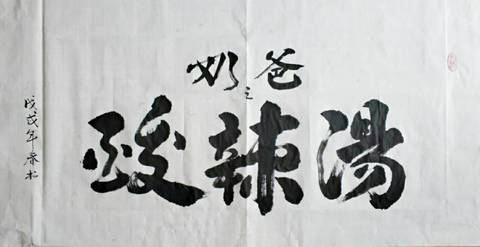 奶爸
之
酸辣湯
戊戌年春